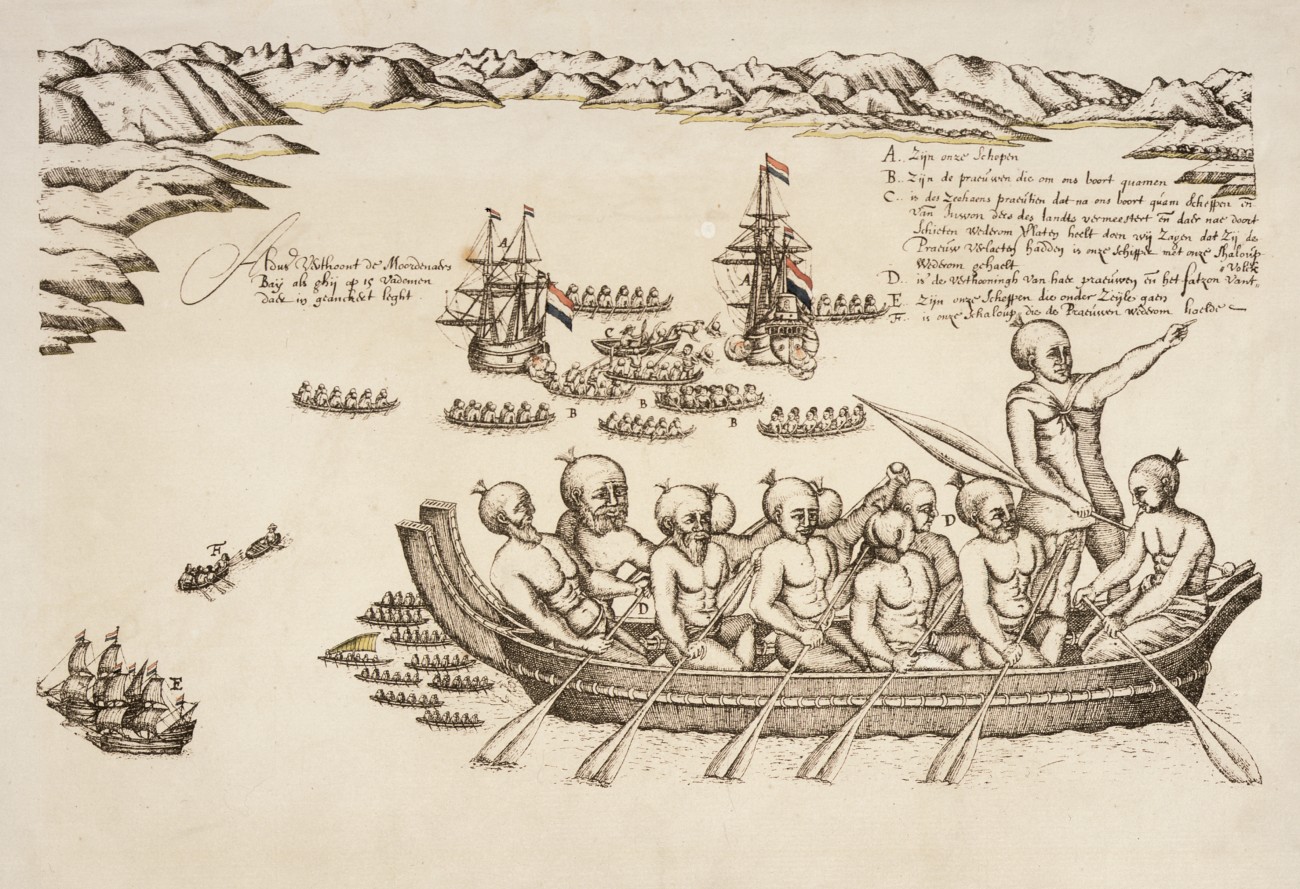 Aldus Verthoont de Moordenaers
Baÿ als ghij op 15 Vademen
daer in geanckert leght.
A.. Zijn onze Schepen
B.. Zijn de praeuwen die om ons boort quamen
C.. is des Zeehaens praeutien dat na ons boort quam Scheppen en
van Inwon ders des landts vermeestert en daer nae door t
Schieten wederom Verlaten heeft doen wij Zagen dat Zij de
Praeuw Verlaeten hadden is onze Schipper met onze Shaloup
Wederom gehaelt
D.. is de Verthooningh van haer praeuwen en het fatzon van t Volck
E.. Zijn onze Scheepen die onder Zeijle gaen
F.. is onze Schaloup die de Praeuwen wederom haelde
A
A
C
B
B
B
D
F
D
E